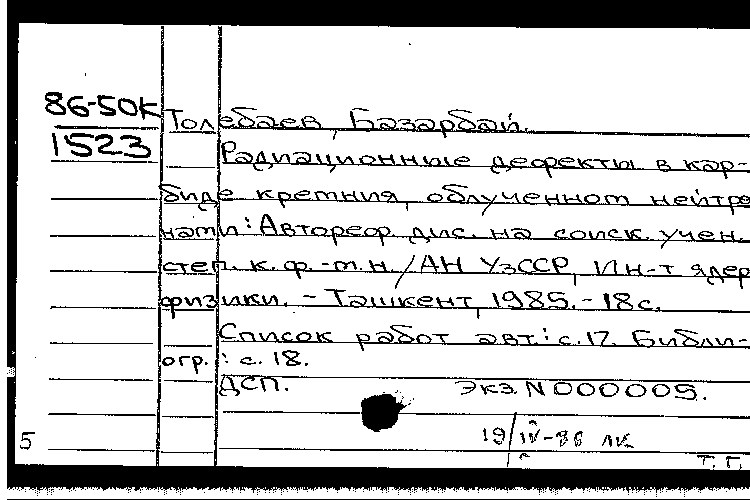 86-50К
1523
Толебаев, Базарбай.
Радиационные дефекты в кар-
биде кремния, облученном нейтро
нами: Автореф. дис. на соиск. учен.
степ. к. ф.-м. н. / АН УзССР, Ин-т ядер
физики. - Ташкент, 1985. - 18 с.
Список работ авт.: с. 17. Библи-
огр.: с. 18.
ДСП. Экз. N 000005.
19/IV-86 лк
5
Т. Г.